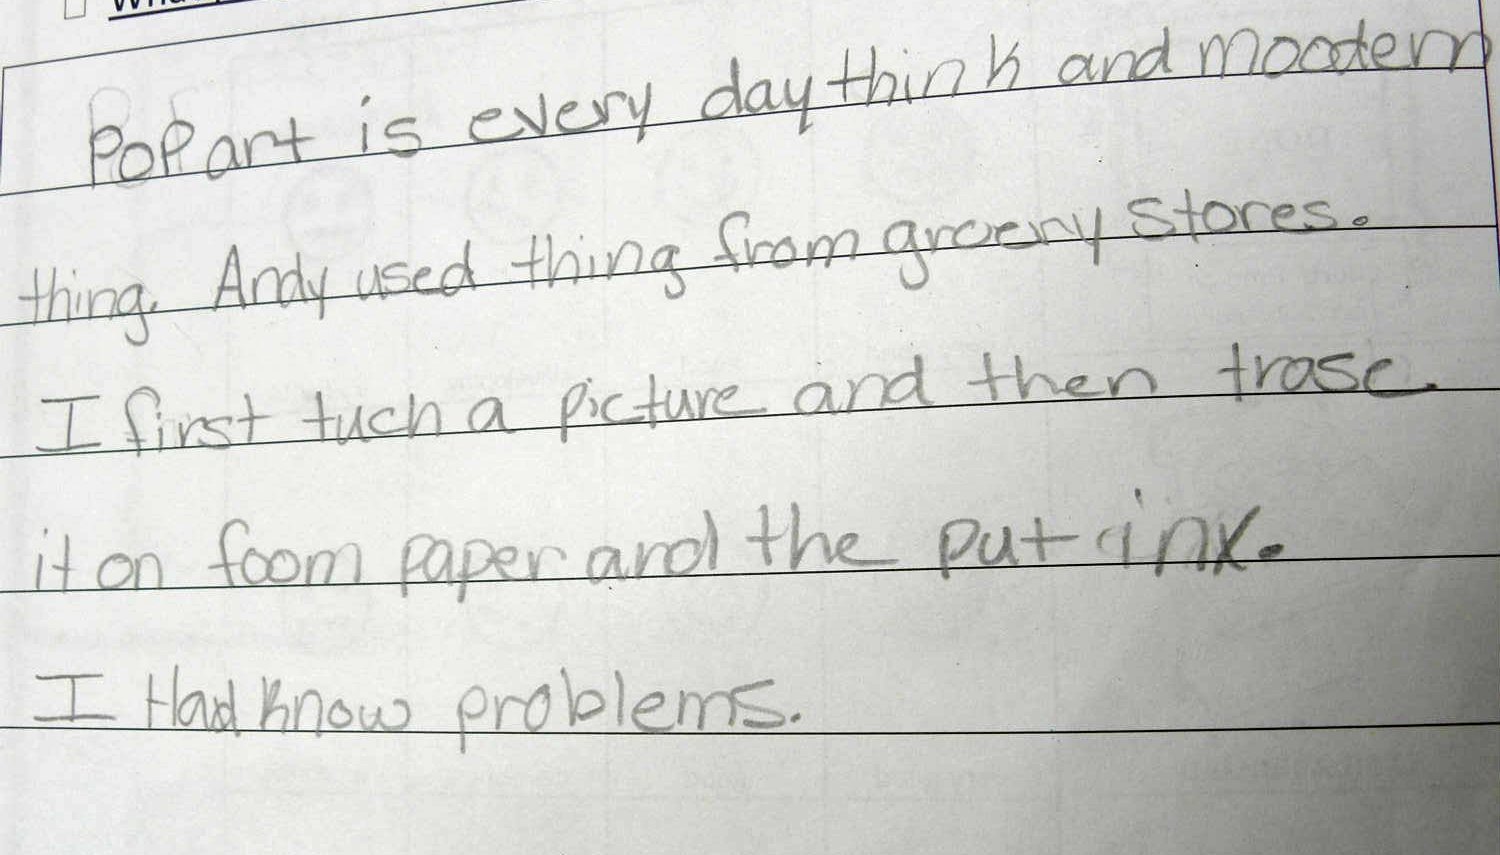 PoP art is every day think and mooдern
thing. Andy used thing from groceny stores.
I first tuch a picture and then trase
it on foom paper and the put inx.
I Had know problems.